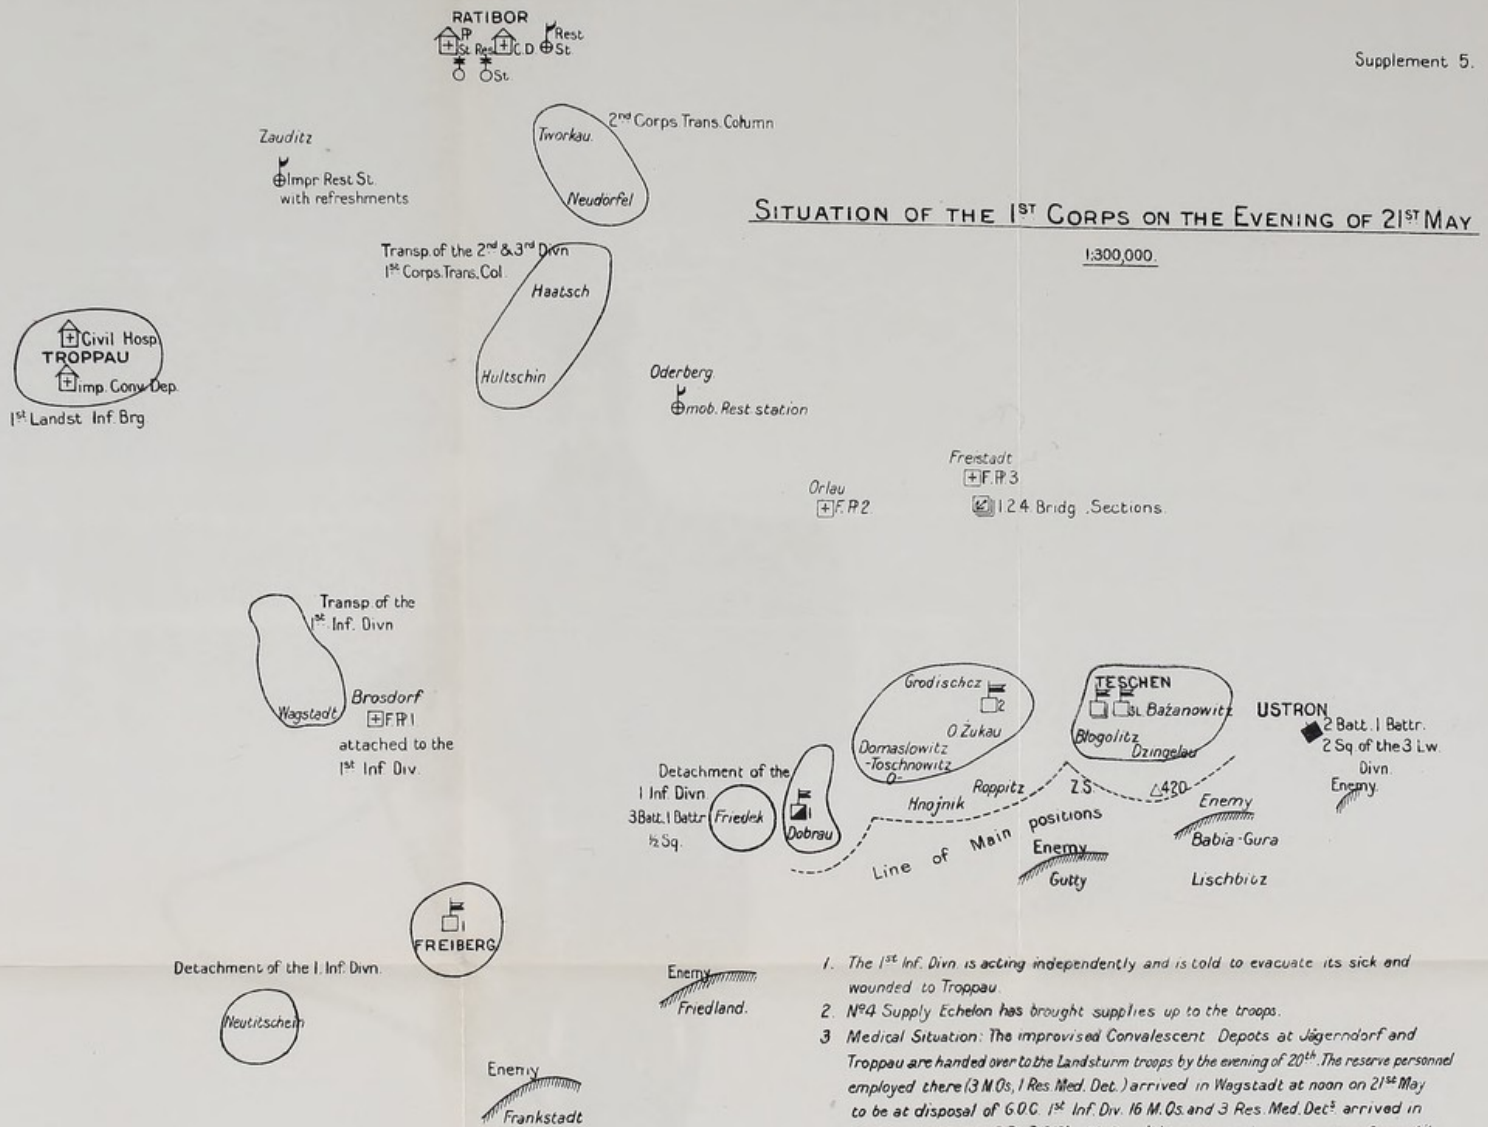 RATIBOR
St Res C.D.
Rest
St
St.
Supplement 5.
Zauditz
Impr Rest St.
with refreshments
Tworkau.
2nd Corps. Trans. Column
Neudörfel
SITUATION OF THE 1ST CORPS ON THE EVENING OF 21ST MAY
1:300,000.
Transp. of the 2nd & 3rd Divn
1st Corps. Trans. Col.
Haatsch
Hultschin
Civil Hosp
TROPPAU
imp. Conv. Dep.
1st Landst Inf. Brg
Oderberg
mob. Rest station
Freistadt
F.P. 3
Orlau
F.P. 2.
1.2.4. Bridg. Sections
Transp of the
1st Inf. Divn
Wagstadt
Brosdorf
F.P. 1
attached to the
1st Inf Div.
Grodischcz
2
O Żukau
Domaslowitz
-Toschnowitz
O-
TESCHEN
Bażanowitz
Blogolitz
Dzingelau
USTRON
2 Batt. 1 Battr.
2 Sq of the 3 Lw.
Divn.
Enemy
Detachment of the
1 Inf. Divn.
3 Batt. 1 Battr
½ Sq.
Friedek
1
Dobrau
Hnojnik
Roppitz
Z.S.
△420
Line of Main positions
Enemy
Babia-Gura
Enemy
Gutty
Lischbitz
1
FREIBERG
Detachment of the 1. Inf. Divn.
Neutitschein
Enemy
Friedland.
Enemy
Frankstadt
1. The 1st Inf. Divn. is acting independently and is told to evacuate its sick and
wounded to Troppau.
2. No 4 Supply Echelon has brought supplies up to the troops.
3 Medical Situation: The improvised Convalescent Depots at Jägerndorf and
Troppau are handed over to the Landsturm troops by the evening of 20th. The reserve personnel
employed there (3 M.Os, 1 Res. Med. Det.) arrived in Wagstadt at noon on 21st May
to be at disposal of G.O.C. 1st Inf. Div. 16 M.Os. and 3 Res. Med. Dets. arrived in